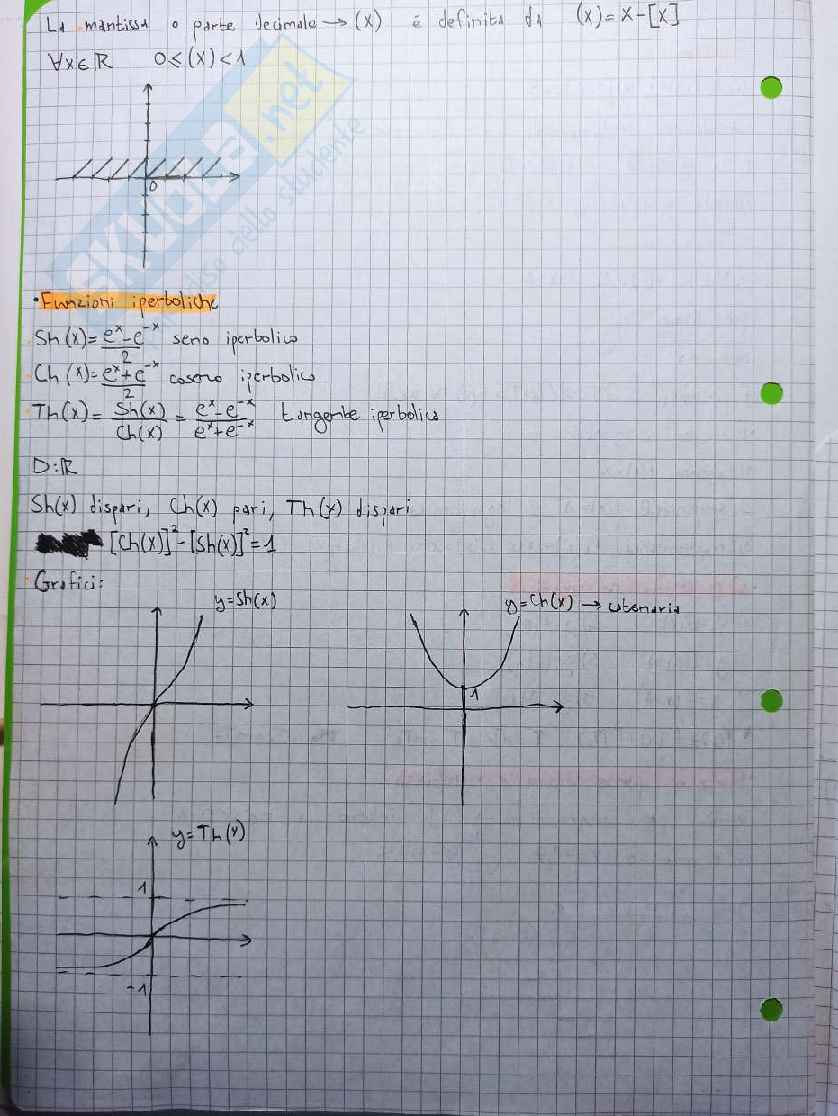 La mantissa o parte decimale → (x) é definita da (x) = x - [x]
∀x∈ℝ 0≤(x)<1
SKUOLA.net
dello studente
0
• Funzioni iperboliche
Sh(x) = (e^x - e^-x)/2 seno iperbolico
Ch(x) = (e^x + e^-x)/2 coseno iperbolico
Th(x) = Sh(x)/Ch(x) = (e^x - e^-x)/(e^x + e^-x) tangente iperbolica
D: ℝ
Sh(x) dispari, Ch(x) pari, Th(x) dispari
[Ch(x)]² - [Sh(x)]² = 1
Grafici:
y = Sh(x)
y = Ch(x) → catenaria
1
y = Th(x)
1
-1